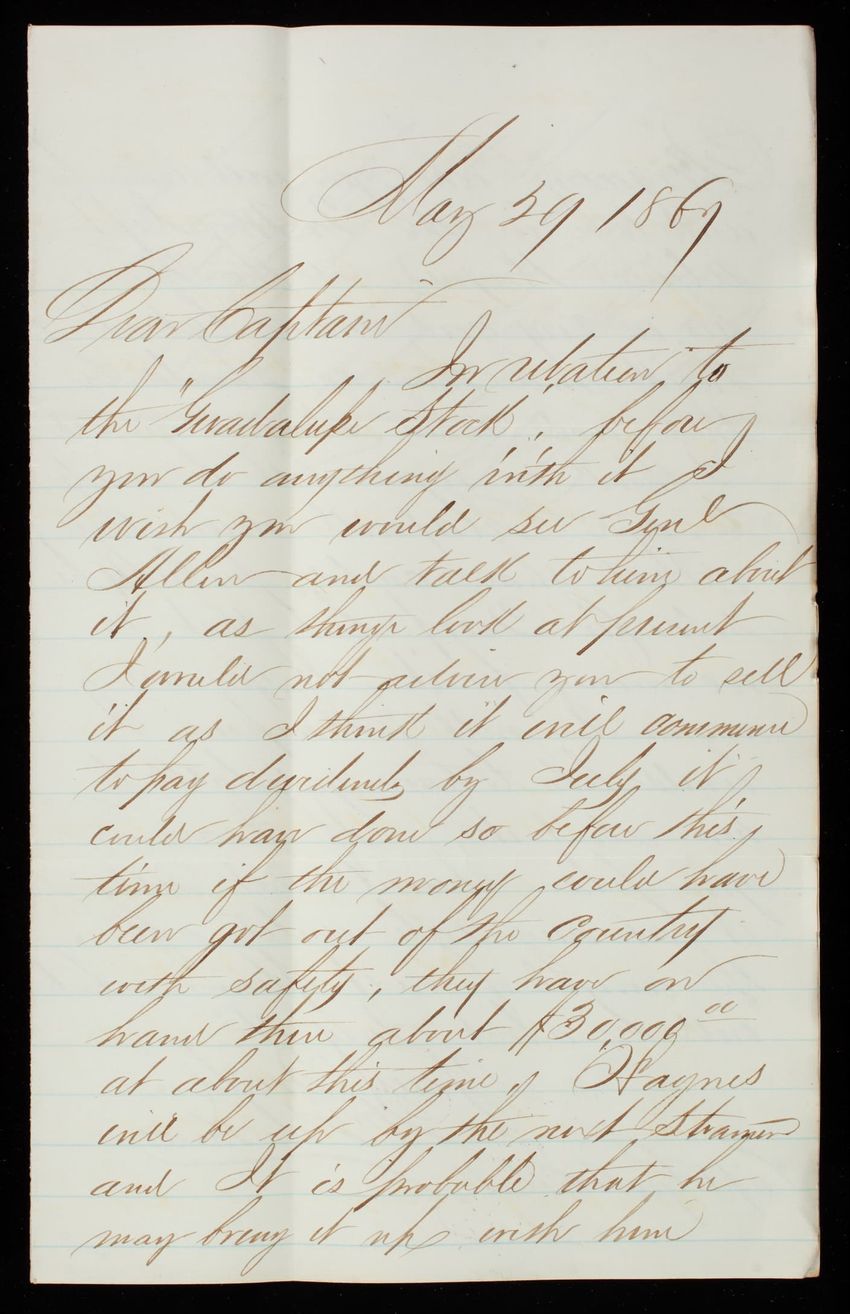 May 29 1867
Dear Captain
In relation to
the "Guadalupe Stock", before
you do anything with it I
wish you would see Genl
Allen and talk to him about
it, as things look at present
I would not advise you to sell
it as I think it will commence
to pay dividends by July it
could have done so before this
time if the money could have
been got out of the Country
with safety, they have on
hand there about $30,000 00
at about this time, Haynes
will be up by the next Steamer
and It is probable that he
may bring it up with him